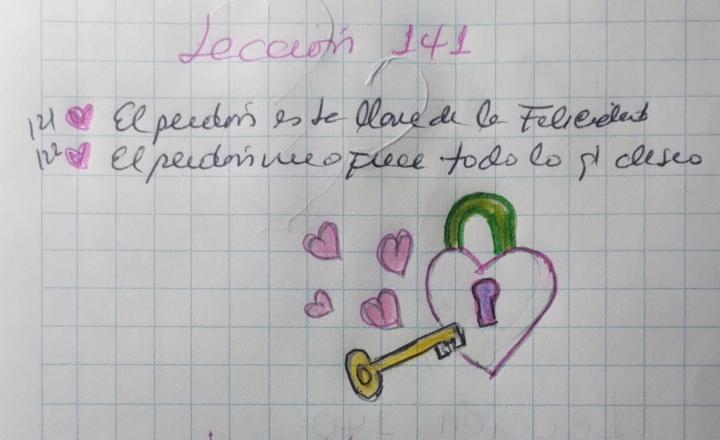 Lección 141
121 El perdón es la llave de la Felicidad
122 El perdón me ofrece todo lo q' deseo